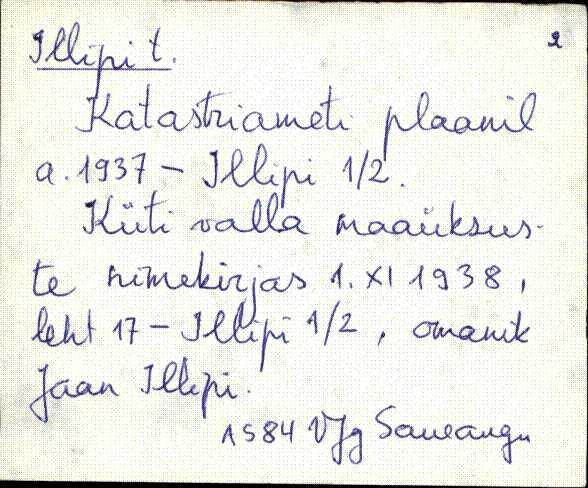 Illipi t. 2
Katastriameti plaanil
a. 1937 - Illipi 1/2.
Küti valla maaüksus-
te nimekirjas 1. XI 1938,
leht 17 - Illipi 1/2, omanik
Jaan Illipi.
1984 VJg